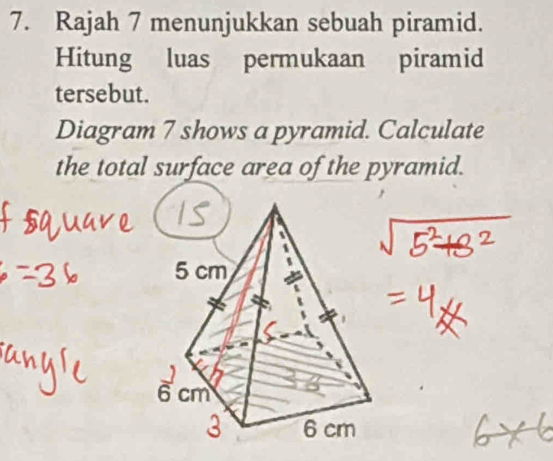 7. Rajah 7 menunjukkan sebuah piramid.
Hitung luas permukaan piramid
tersebut.
Diagram 7 shows a pyramid. Calculate
the total surface area of the pyramid.
f square
15
√5²+3²
=36
5 cm
= 4
5
angle
3
6 cm
36
3
6 cm
6×6